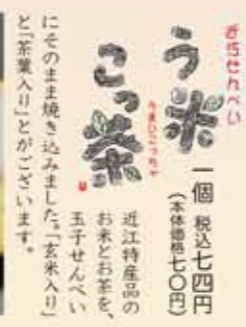 近江せんべい
う米
こっ茶
うまいこっちゃ
一個 税込七四円
(本体価格七〇円)
近江特産品の
お米とお茶を、
玉子せんべい
にそのまま焼き込みました。「玄米入り」
と「茶葉入り」とがございます。